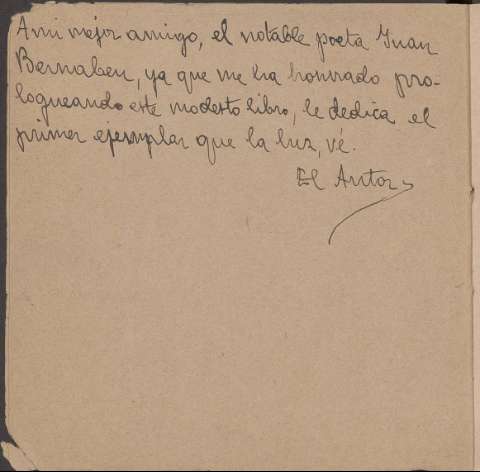 A mi mejor amigo, el notable poeta Juan
Bernabeu, ya que me ha honrado pro-
logueando este modesto libro, le dedica el
primer ejemplar que la luz, vé.
El Autor